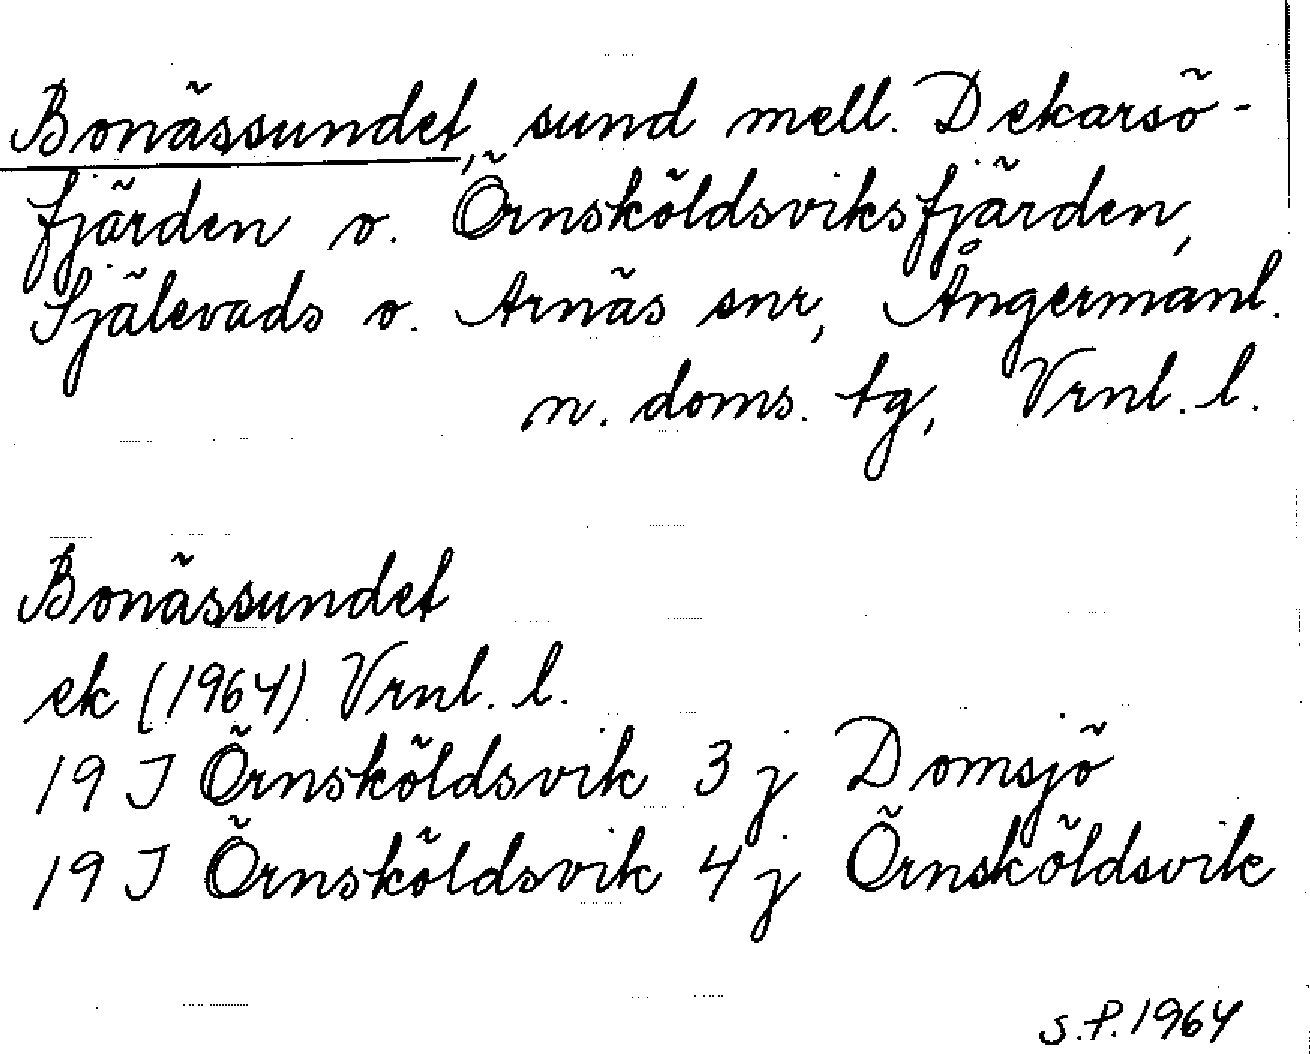 Bonässundet, sund mell. Dekarsö-
fjärden o. Örnsköldsviksfjärden,
Själevads o. Arnäs snr, Ångermanl.
n. doms. tg, Vrnl. l.
Bonässundet
ek (1964) Vrnl. l.
19 J Örnsköldsvik 3 j Domsjö
19 J Örnsköldsvik 4 j Örnsköldsvik
S.P. 1964